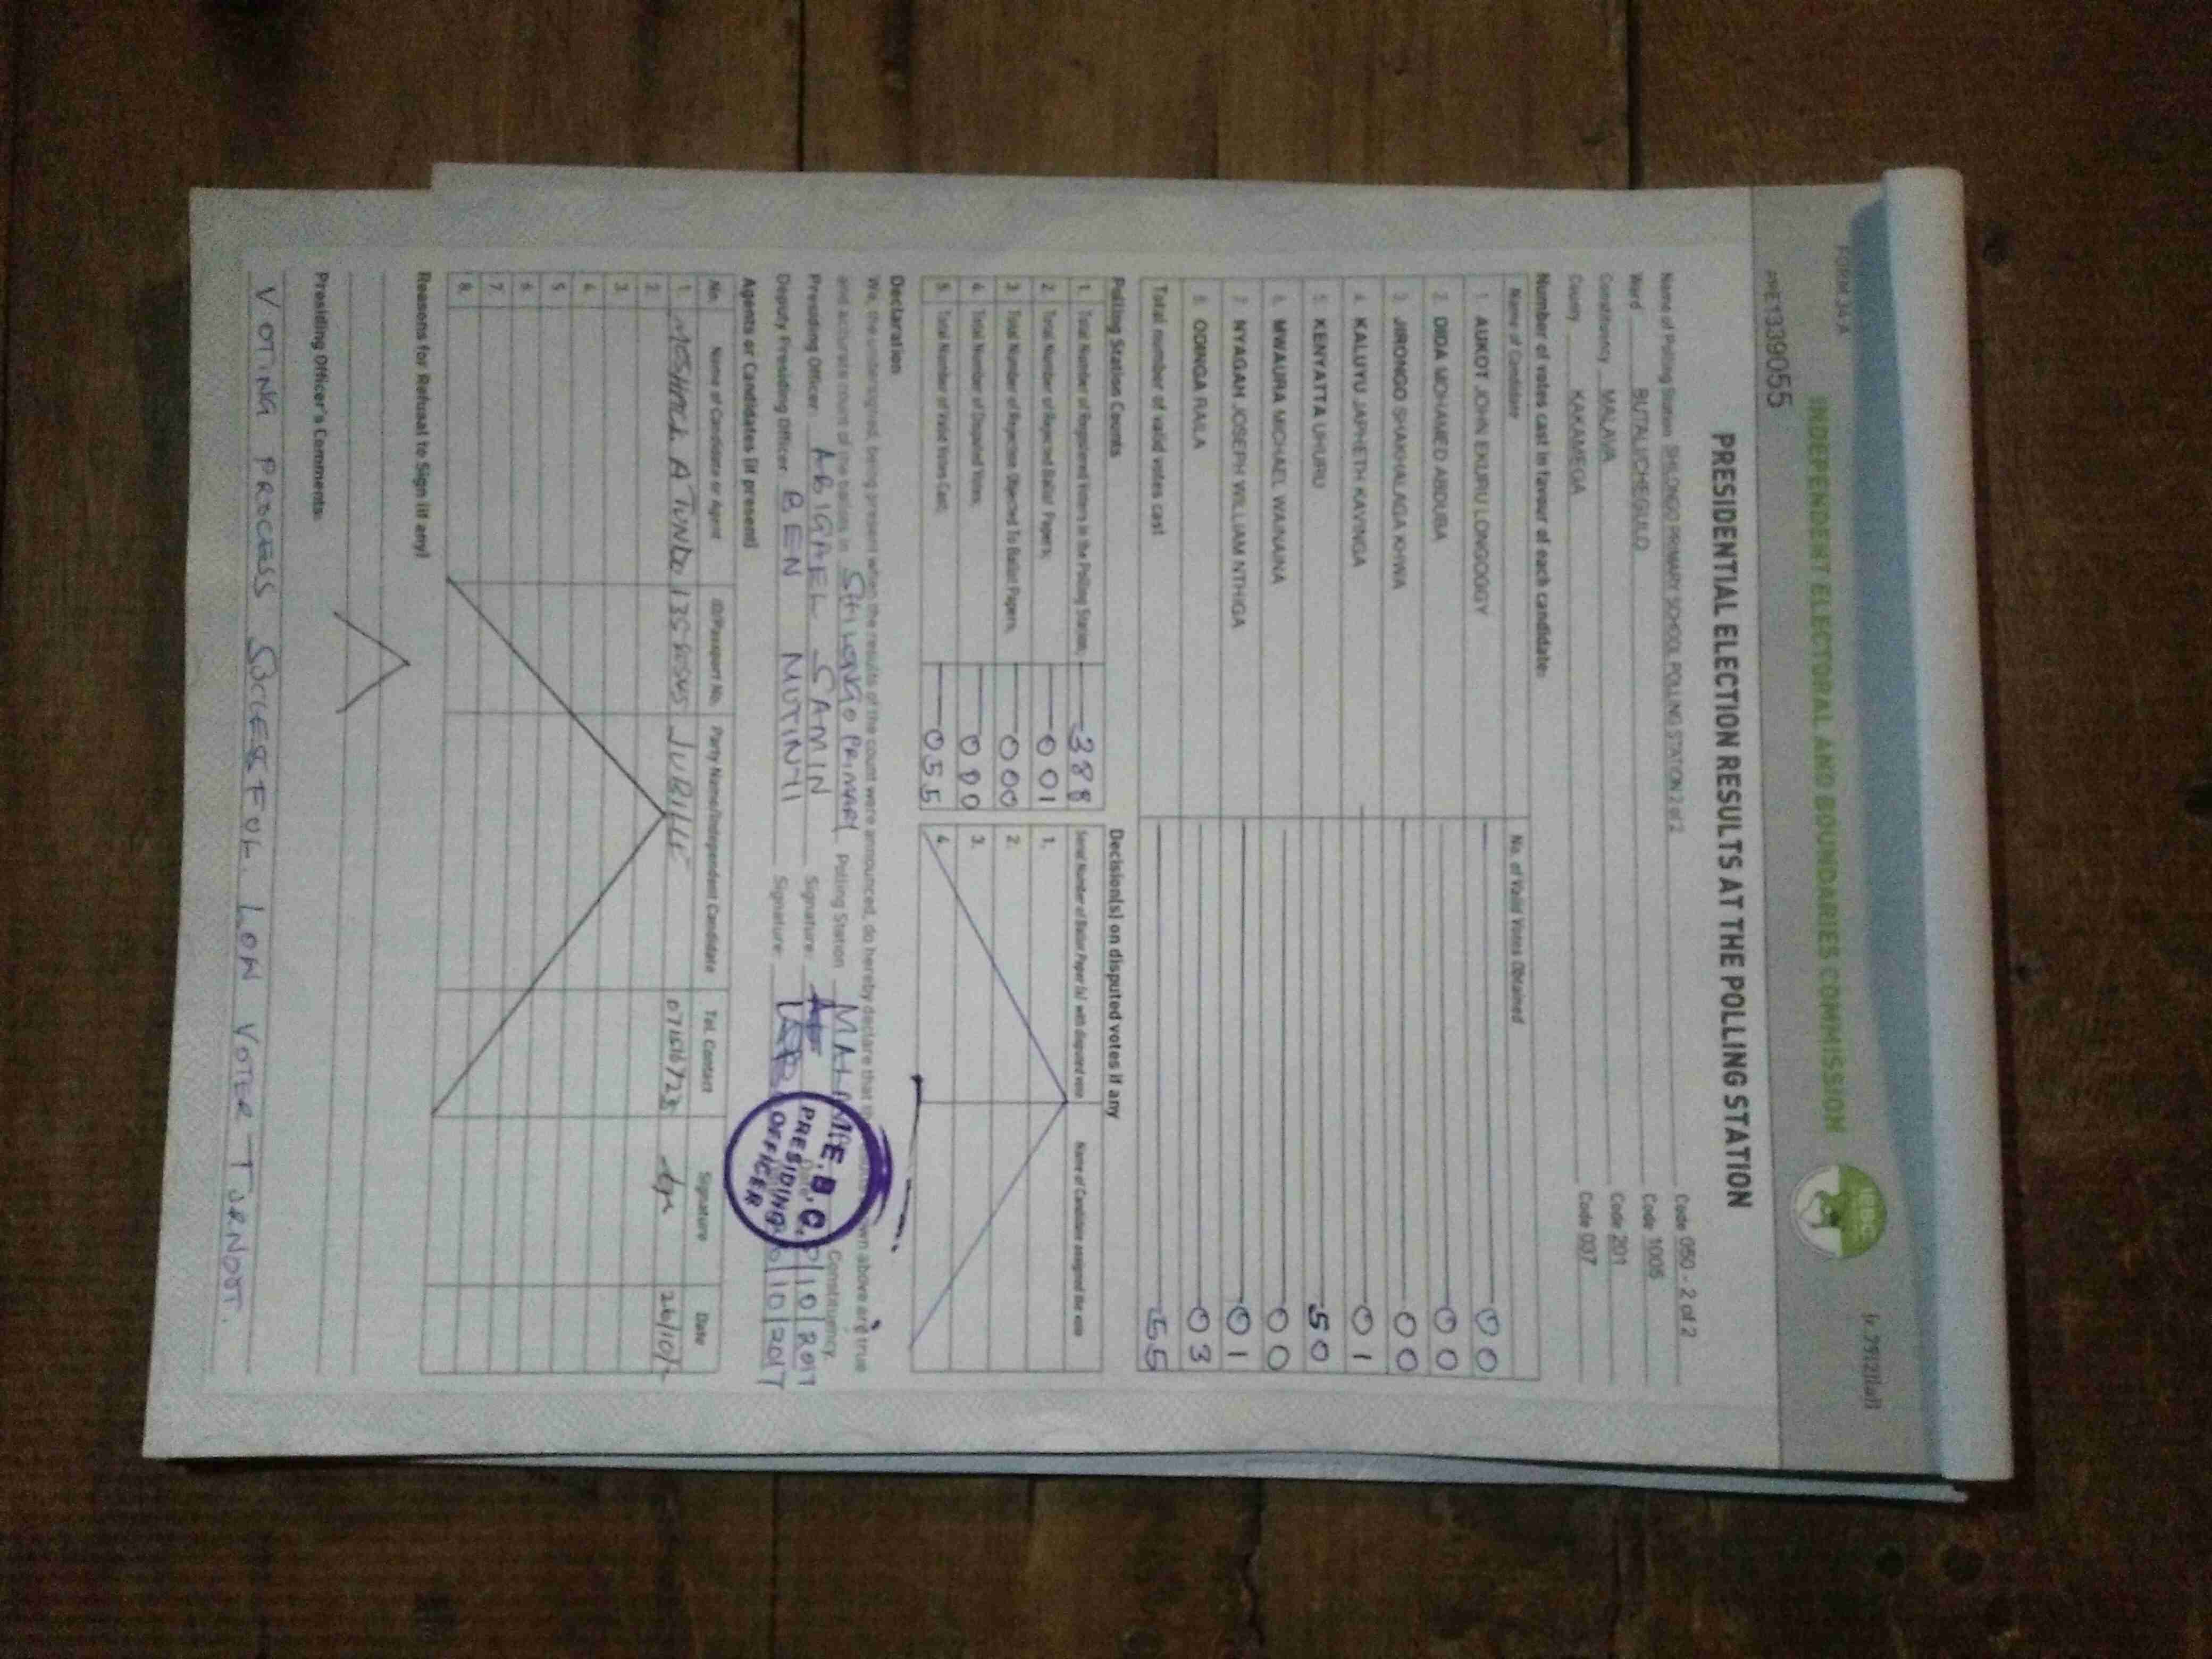 FORM 34 A
INDEPENDENT ELECTORAL AND BOUNDARIES COMMISSION
IEBC
PRE1339055
PRESIDENTIAL ELECTION RESULTS AT THE POLLING STATION
Name of Polling Station SHILONGO PRIMARY SCHOOL POLLING STATION 2 of 2 Code 050 - 2 of 2
Ward BUTALI/CHEGULO Code 1005
Constituency MALAVA Code 201
County KAKAMEGA Code 037
Number of votes cast in favour of each candidate:
Name of Candidate No. of Valid Votes Obtained
1. AUKOT JOHN EKURU LONGOGGY 00
2. DIDA MOHAMED ABDUBA 00
3. JIRONGO SHAKHALAGA KHWA 00
4. KALUYU JAPHETH KAVINGA 01
5. KENYATTA UHURU 50
6. MWAURA MICHAEL WAINAINA 00
7. NYAGAH JOSEPH WILLIAM NTHIGA 01
8. ODINGA RAILA 03
Total number of valid votes cast 55
Polling Station Counts
1. Total Number of Registered Voters in the Polling Station; 388
2. Total Number of Rejected Ballot Papers; 001
3. Total Number of Rejection Objected To Ballot Papers; 000
4. Total Number of Disputed Votes; 000
5. Total Number of Valid Votes Cast; 055
Decision(s) on disputed votes if any
Serial Number of Ballot Paper (s) with disputed vote Name of Candidate assigned the vote
1.
2.
3.
4.
Declaration
We, the undersigned, being present when the results of the count were announced, do hereby declare that the own above are true
and accurate count of the ballots in SHILONGO PRIMARY Polling Station Constituency.
Presiding Officer: ABIGAEL SAMIN Signature: 10/2017
Deputy Presiding Officer: BEN MUTINHI Signature: 10/2017
I.E.B.C.
PRESIDING
OFFICER
Agents or Candidates (if present)
No. Name of Candidate or Agent ID/Passport No. Party Name/Independent Candidate Tel. Contact Signature Date
1. ATUNDO JUBILEE 26/10/
2.
3.
4.
5.
6.
7.
8.
Reasons for Refusal to Sign (if any)
Presiding Officer's Comments:
VOTING PROCESS SUCCESSFUL. LOW VOTER TURNOUT.